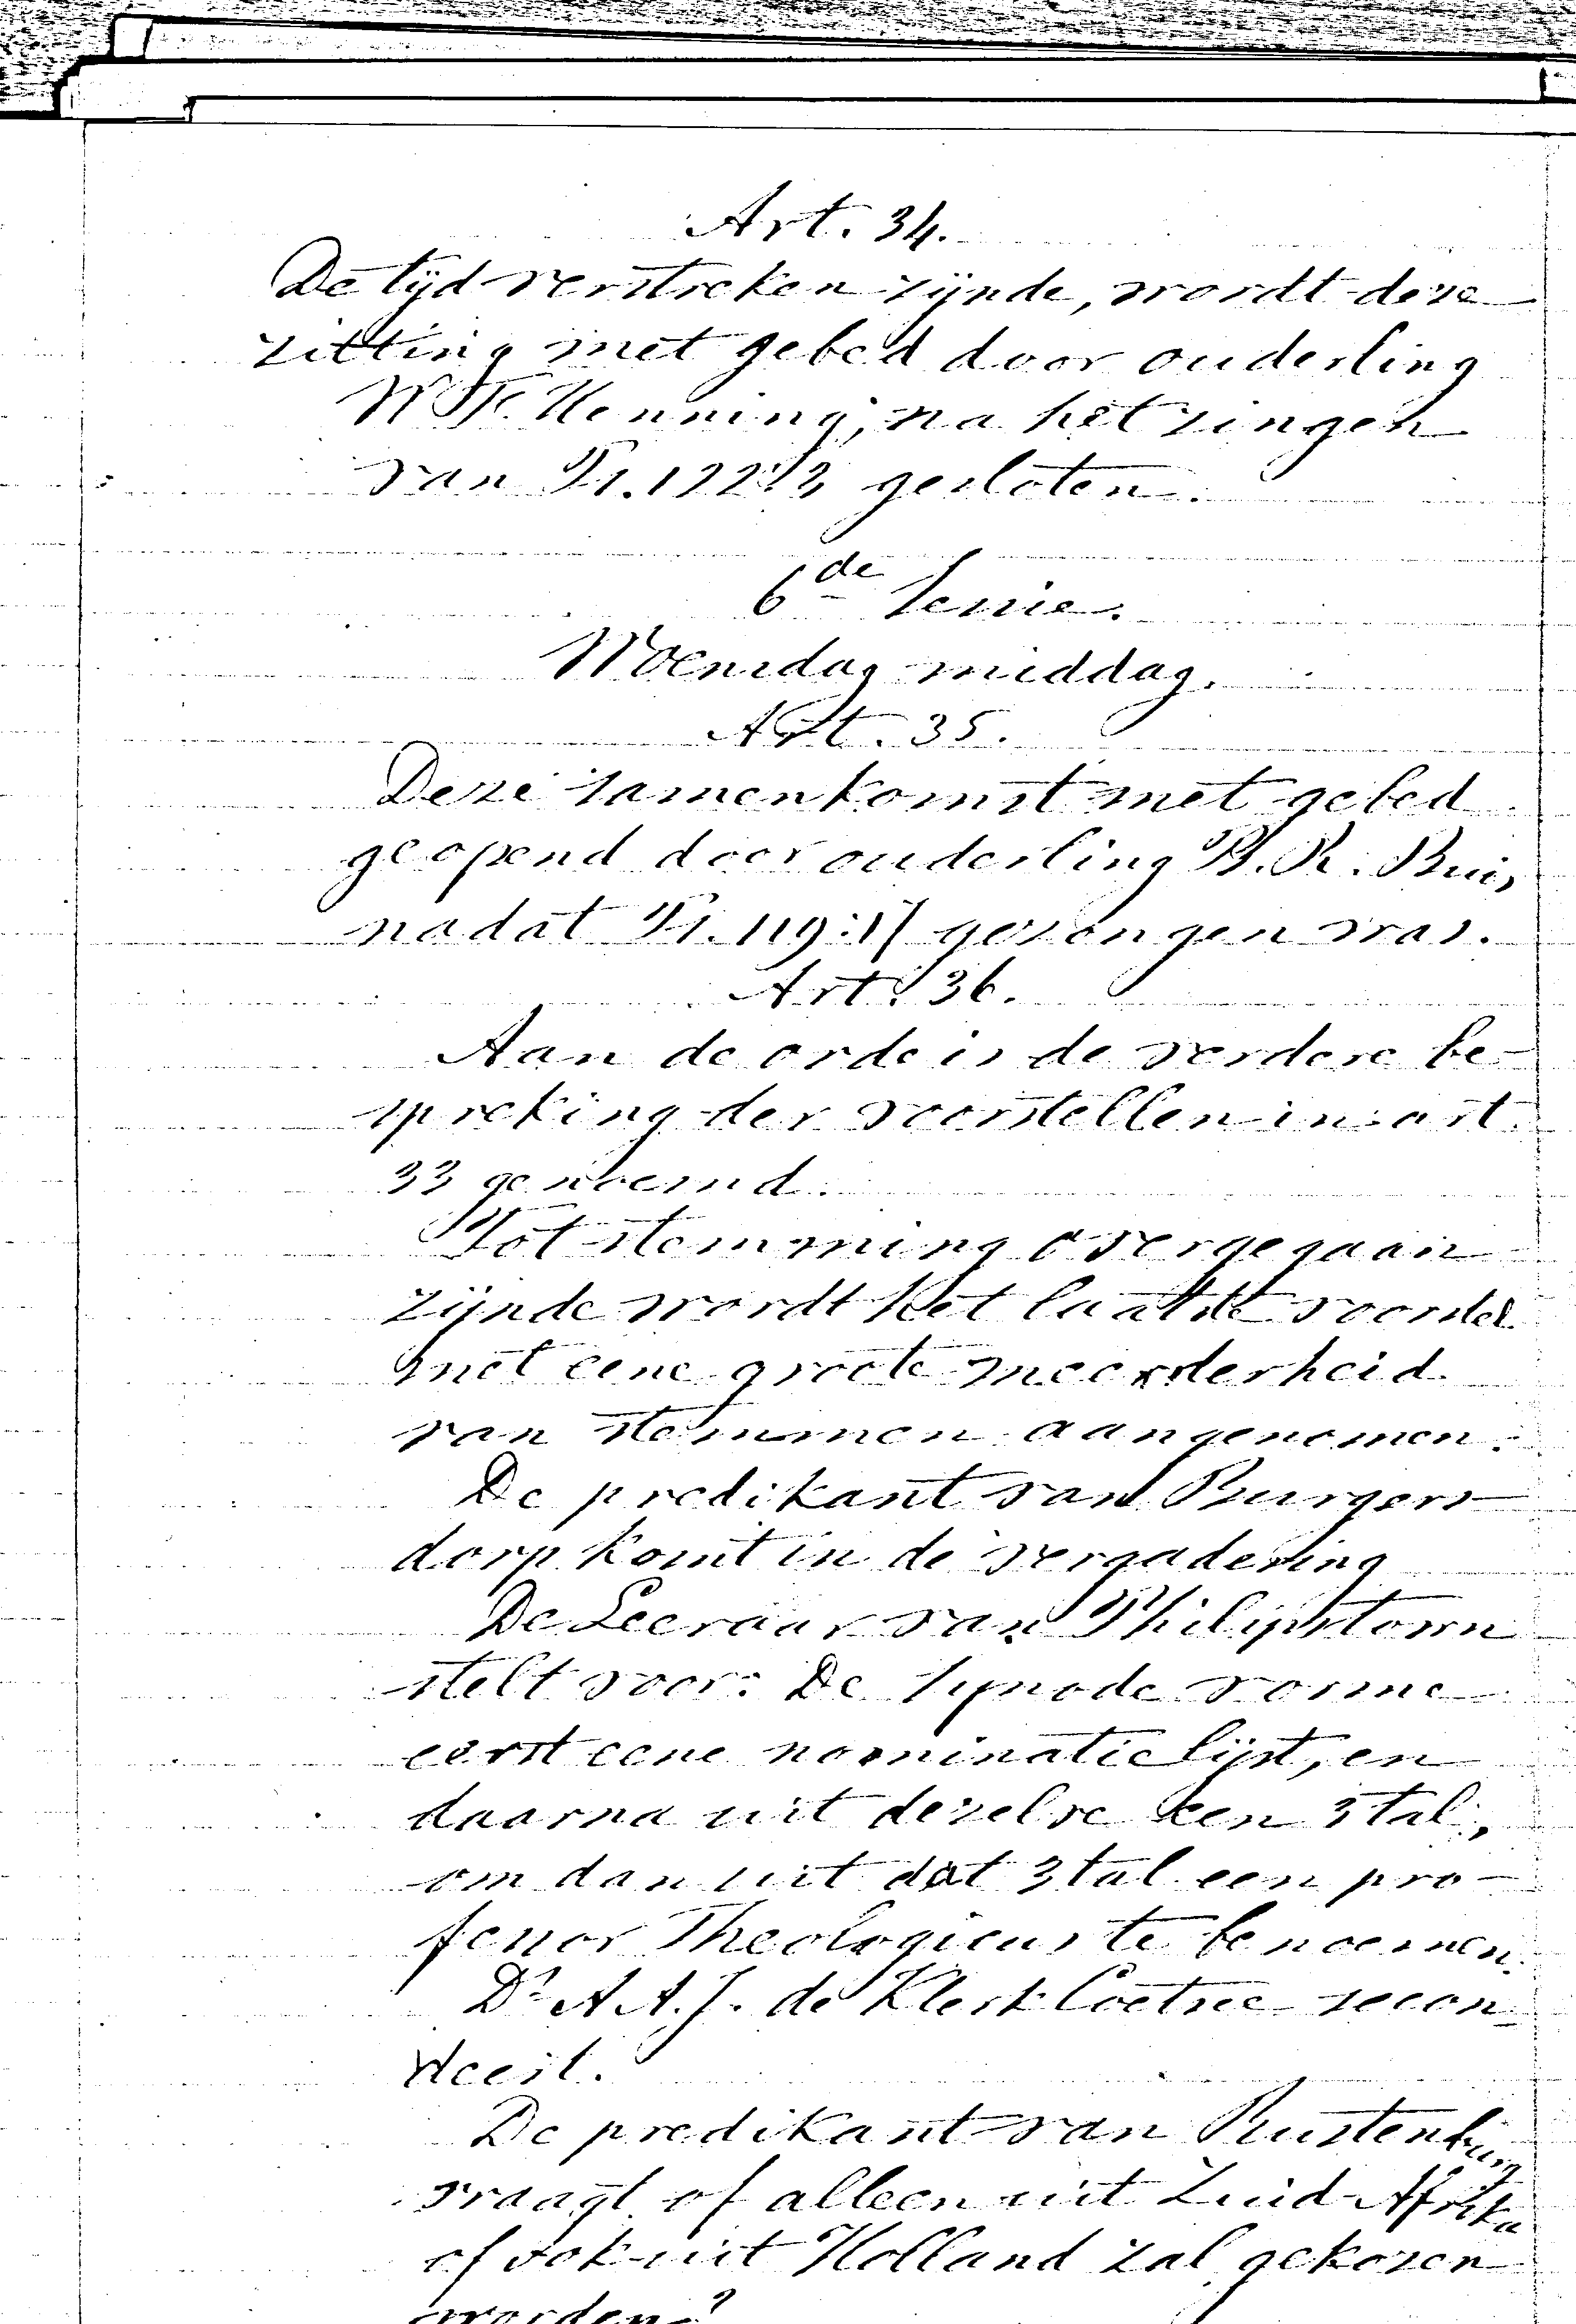 Art. 34.
De tijd verstreken zijnde, wordt deze
zitting met gebed door ouderling
Henning, na het zingen
van Ps. 122:3 gesloten.
6de Sessie.
Woensdag middag.
Art. 35.
Deze samenkomst met gebed
geopend door ouderling R. Buis,
nadat Ps. 119: gezongen was.
Art. 36.
Aan de orde is de verdere be-
spreking der voorstellen in art.
33 genoemd.
Tot stemming overgegaan
zijnde wordt het laatste voorstel
met eene groote meerderheid
van stemmen aangenomen.
De predikant van Burgers-
dorp komt in de vergadering
De Leeraar van Philipstown
stelt voor: De Synode vorme
eerst eene nominatie lijst, en
daarna uit dezelve een 3tal,
om dan uit dat 3tal een pro-
fessor Theologicus te benoemen.
Ds A. A. J. de Klerk Coetzee secon-
deert.
De predikant van Rustenburg
vraagt of alleen uit Zuid-Afrika
of ook uit Holland zal gekozen
worden?